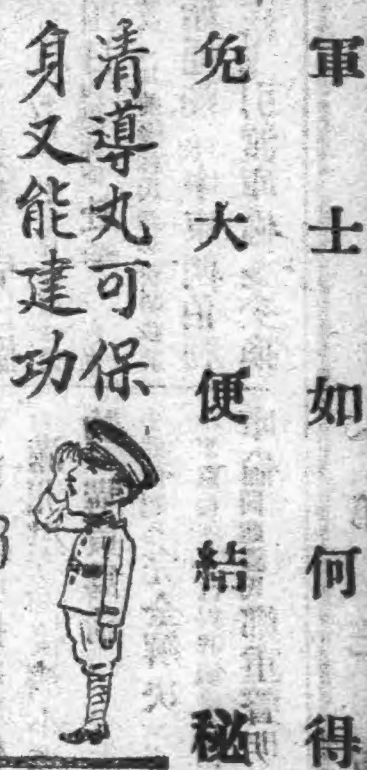 軍士如何得
免大便結秘
清導丸可保
身又能建功